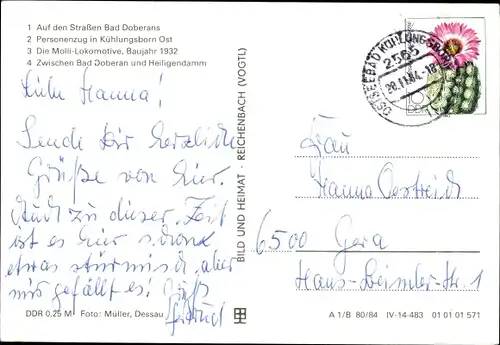 1 Auf den Straßen Bad Doberans
2 Personenzug in Kühlungsborn Ost
3 Die Molli-Lokomotive, Baujahr 1932
4 Zwischen Bad Doberan und Heiligendamm
Liebe Hanna!
Sende Dir herzliche
Grüße von hier.
Auch zu dieser Zeit
ist es hier schön
etwas stürmisch, aber
mir gefällt es! Gruß
Gertrud
DDR 0,25 M Foto: Müller, Dessau
BILD UND HEIMAT REICHENBACH (VOGTL)
OSTSEEBAD KÜHLUNGSBORN
2565
28.11.84-18
10
DDR
Frau
Hanna Oestreich
6500 Gera
Hans-Beimler-Str. 1
A 1/B 80/84 IV-14-483 01 01 01 571